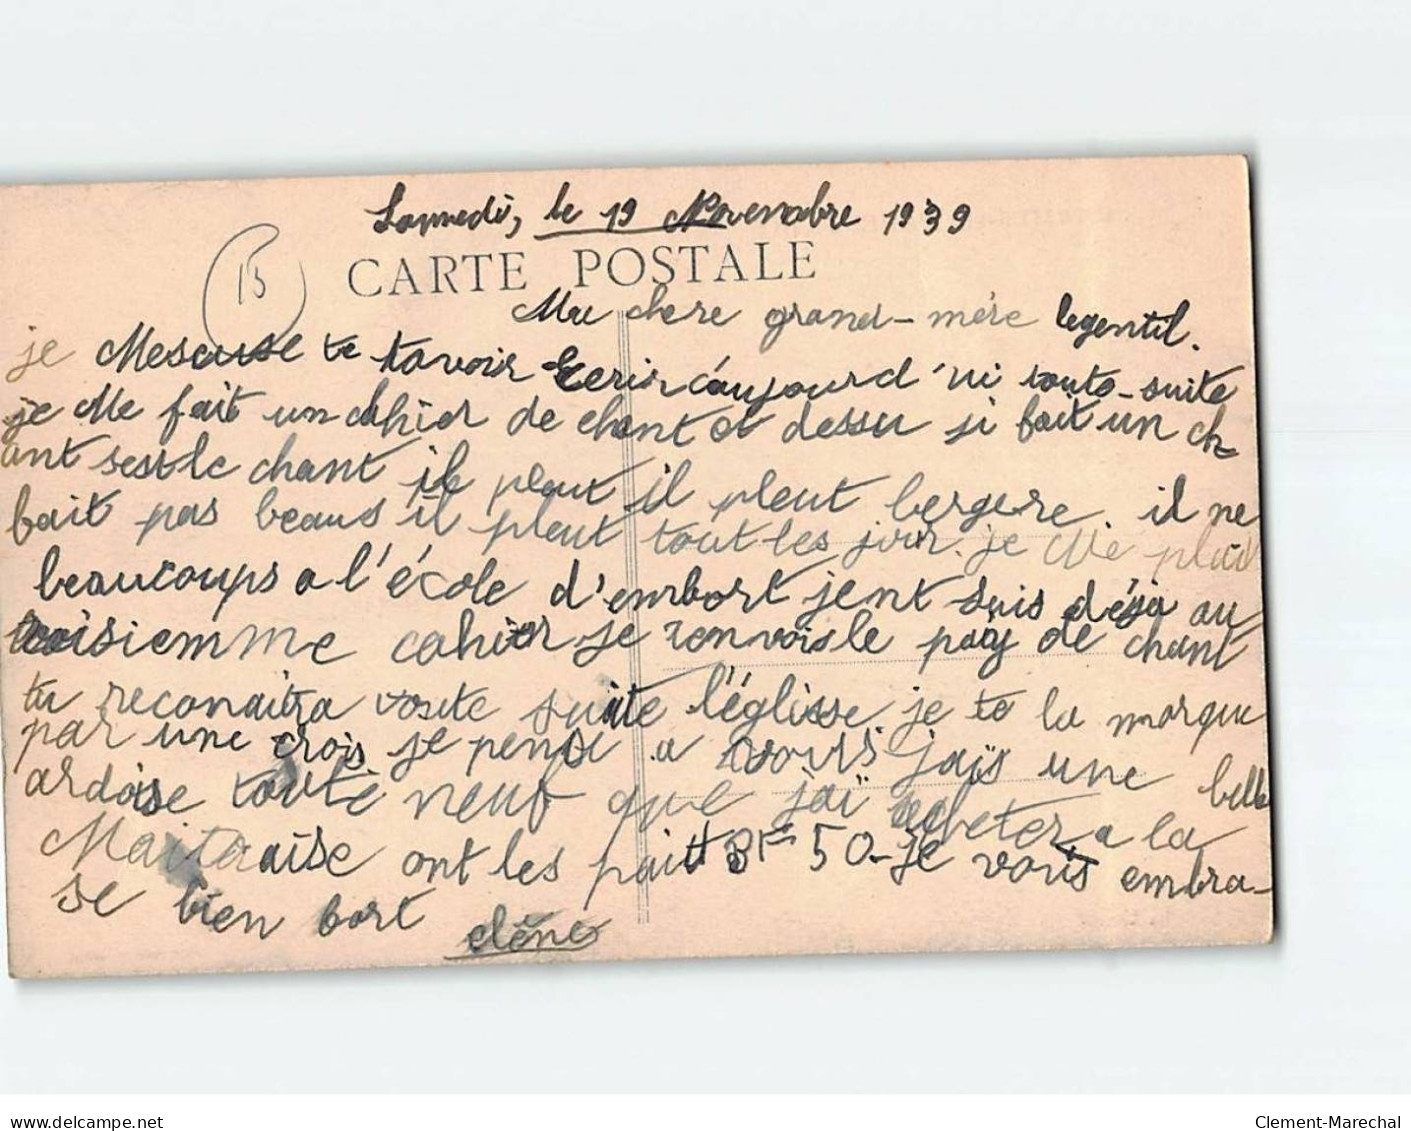 Samedi, le 19 Novembre 1939
15
CARTE POSTALE
Ma chere grand-mére legentil.
je Mescuse te tavoir Ecrir aujourd'ui toute-suite
je Me fait un cahier de chant et dessu ji fait un ch
ant sest le chant il pleut il pleut bergere il ne
fait pas beaus il pleut tout les jour. je Me plait
beaucoups a l'école d'embort jent suis déja au
troisiemme cahier je tenvois le paiy de chant
tu reconaitra toute suite l'églisse je te la marque
par une crois je pense a vous jaïs une belle
ardoise toute neuf que jaï acheter a la
Maitraise ont les pait 3F 50-je vous embra-
se bien fort